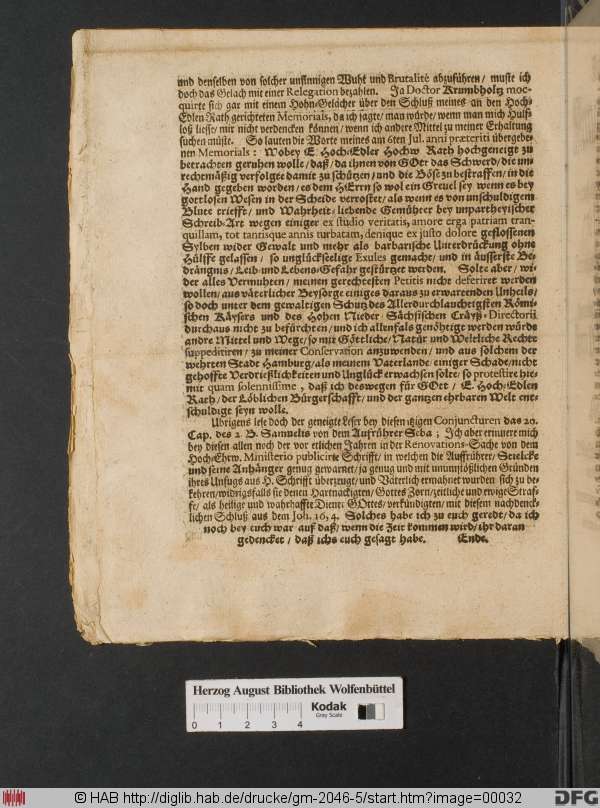 und denselben von solcher unsinnigen Wuht und Brutalitè abzuführen / muste ich
doch das Gelach mit einer Relegation bezahlen. Ja Doctor Krumbholtz moc-
quirte sich gar mit einem Hohn-Gelächer über den Schluß meines an den Hoch-
Edlen Rath gerichteten Memorials, da ich sagte / man würde / wenn man mich Hülff-
loß liesse / mir nicht verdencken können / wenn ich andere Mittel zu meiner Erhaltung
suchen müste. So lauten die Worte meines am 6ten Jul. anni præteriti übergebe-
nen Memorials: Wobey E. Hoch-Edler Hochw Rath hochgeneigt zu
betrachten geruhen wolle / daß / da ihnen von GOtt das Schwerd / die un-
rechtmäßig verfolgte damit zu schützen / und die Böse zu bestraffen / in die
Hand gegeben worden / es dem HErrn so wol ein Greuel sey wenn es bey
gottlosen Wesen in der Scheide verrostet / als wenn es von unschuldigem
Blute trieffte / und Wahrheit-liebende Gemüther bey unpartheyischer
Schreib-Art wegen einiger ex studio veritatis, amore erga patriam tran-
quillam, tot tantisque annis turbatam, denique ex justo dolore geflossenen
Sylben wider Gewalt und mehr als barbarische Unterdrückung ohne
Hülffe gelassen / so unglückseelige Exules gemacht / und in äusserste Be-
drängnis / Leib- und Lebens-Gefahr gestürtzet werden. Solte aber / wi-
der alles Vermuhten / meinen gerechtesten Petitis nicht deferiret werden
wollen / aus väterlicher Beysorge einiges daraus zu erwartenden Unheils /
so doch unter dem gewaltigen Schutz des Allerdurchlauchtigsten Römi-
schen Käysers und des Hohen Nieder-Sächsischen Cräyß-Directorii
durchaus nicht zu befürchten / und ich allenfals genöhtiget werden würde
andre Mittel und Wege / so mir Göttliche / Natür und Weltliche Rechte
suppeditiren / zu meiner Conservation anzuwenden / und aus solchem der
wehrten Stadt Hamburg / als meinem Vaterlande / einiger Schade / nicht
gehoffte Verdrießlichkeiten und Unglück erwachsen solte / so protestire hie-
mit quam solennissime, daß ich deswegen für GOtt / E. Hoch-Edlen
Rath / der Löblichen Bürgerschafft / und der gantzen ehrbaren Welt ent-
schuldigt seyn wolle.
Ubrigens lese doch der geneigte Leser bey diesen itzigen Conjuncturen das 20.
Cap. des 2. B. Samuelis von dem Auffrührer Seba; Ich aber erinnere mich
bey diesen allen noch der vor etlichen Jahren in der Renovations-Sache von dem
Hoch-Ehrw. Ministerio publicirte Schrifft / in welchen die Auffrührer / Stielcke
und seine Anhänger genug gewarnet / ja genug und mit unumstößlichen Gründen
ihres Unfugs aus H. Schrifft überzeugt / und Väterlich ermahnet wurden sich zu be-
kehren / widrigsfalls sie denen Hartnäckigten / Gottes Zorn / zeitliche und ewige Straf-
fe / als heilige und wahrhaffte Diener GOttes / verkündigten / mit diesem nachdenck-
lichen Schluß aus dem Joh. 16, 4. Solches habe ich zu euch geredt / da ich
noch bey euch war auf daß / wenn die Zeit kommen wird / ihr daran
gedencket / daß ichs euch gesagt habe. Ende.
Herzog August Bibliothek Wolfenbüttel
0 1 2 3 4
Kodak
Gray Scale
© HAB http://diglib.hab.de/drucke/gm-2046-5/start.htm?image=00032
DFG